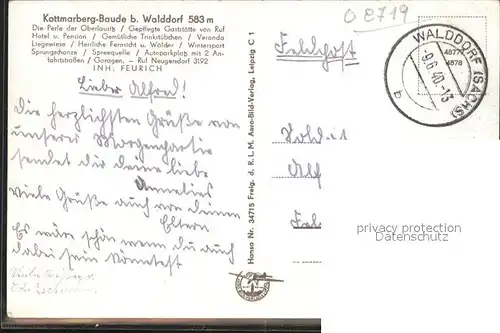 Kottmarberg-Baude b. Walddorf 583 m
Die Perle der Oberlausitz / Gepflegte Gaststätte von Ruf
Hotel u. Pension / Gemütliche Trinkstübchen / Veranda
Liegewiese / Herrliche Fernsicht u. Wälder / Wintersport
Sprungschanze / Spreequelle / Autoparkplatz mit 2 An-
fahrtstraßen / Garagen. — Ruf Neugersdorf 3192
INH. FEURICH
Lieber Alfred!
Die herzlichsten Grüße von
unserer Morgenpartie
sendet dir deine liebe
Annelies
Viele Grüße auch von deinen
Eltern
Es wäre schön wenn du auch
dabei sein könntest
Hansa Nr. 34715 Freig. d. R.L.M. Aero-Bild-Verlag, Leipzig C 1
8719
Feldpost
WALDDORF (SACHS)
-9.6.40-13
b
4877
4878
Soldat
Alf
Fel
privacy protection
Datenschutz